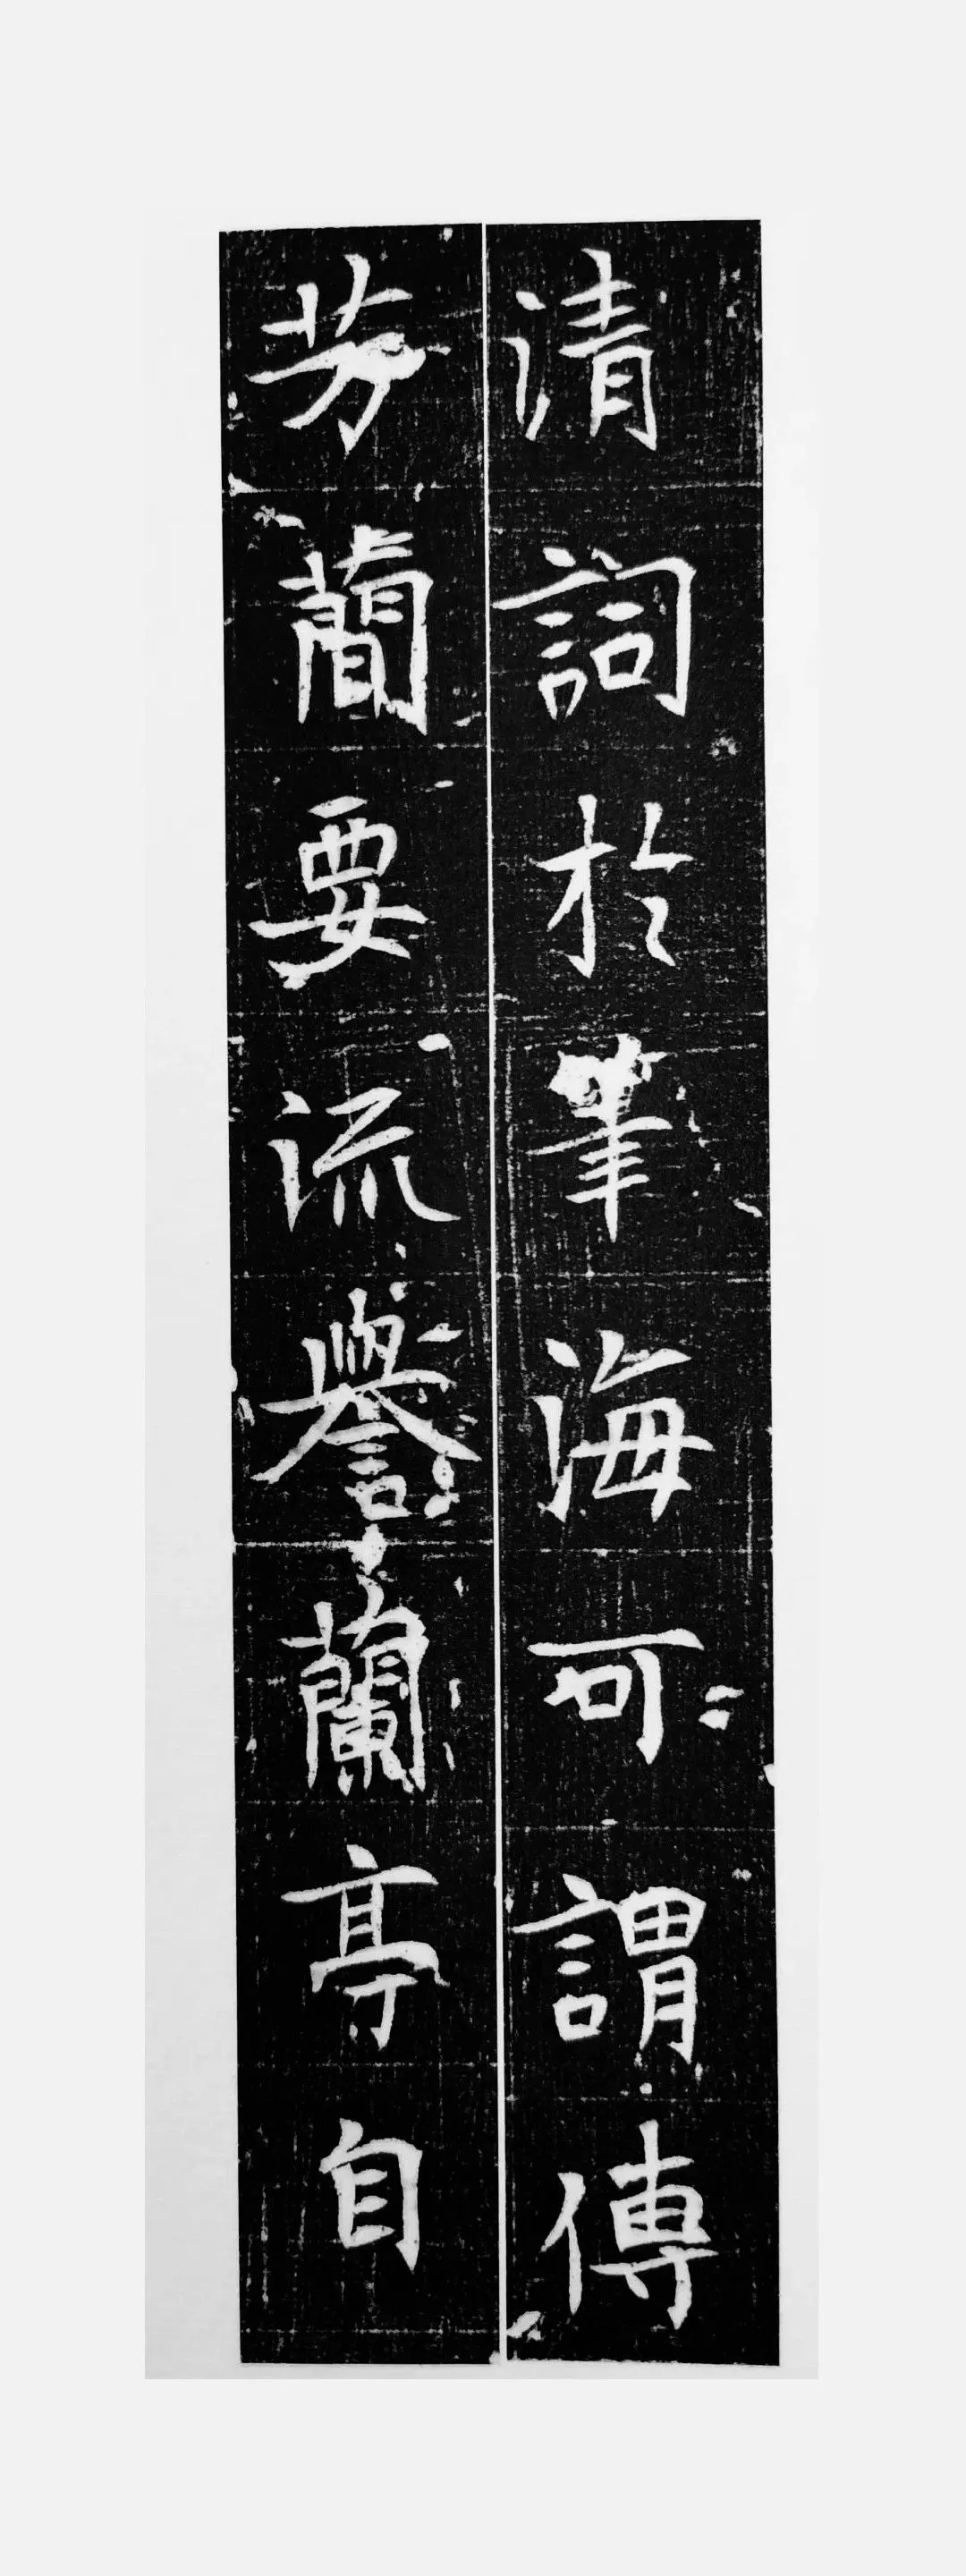 清詞於筆海可謂傳
芳蕳要流譽蘭亭自